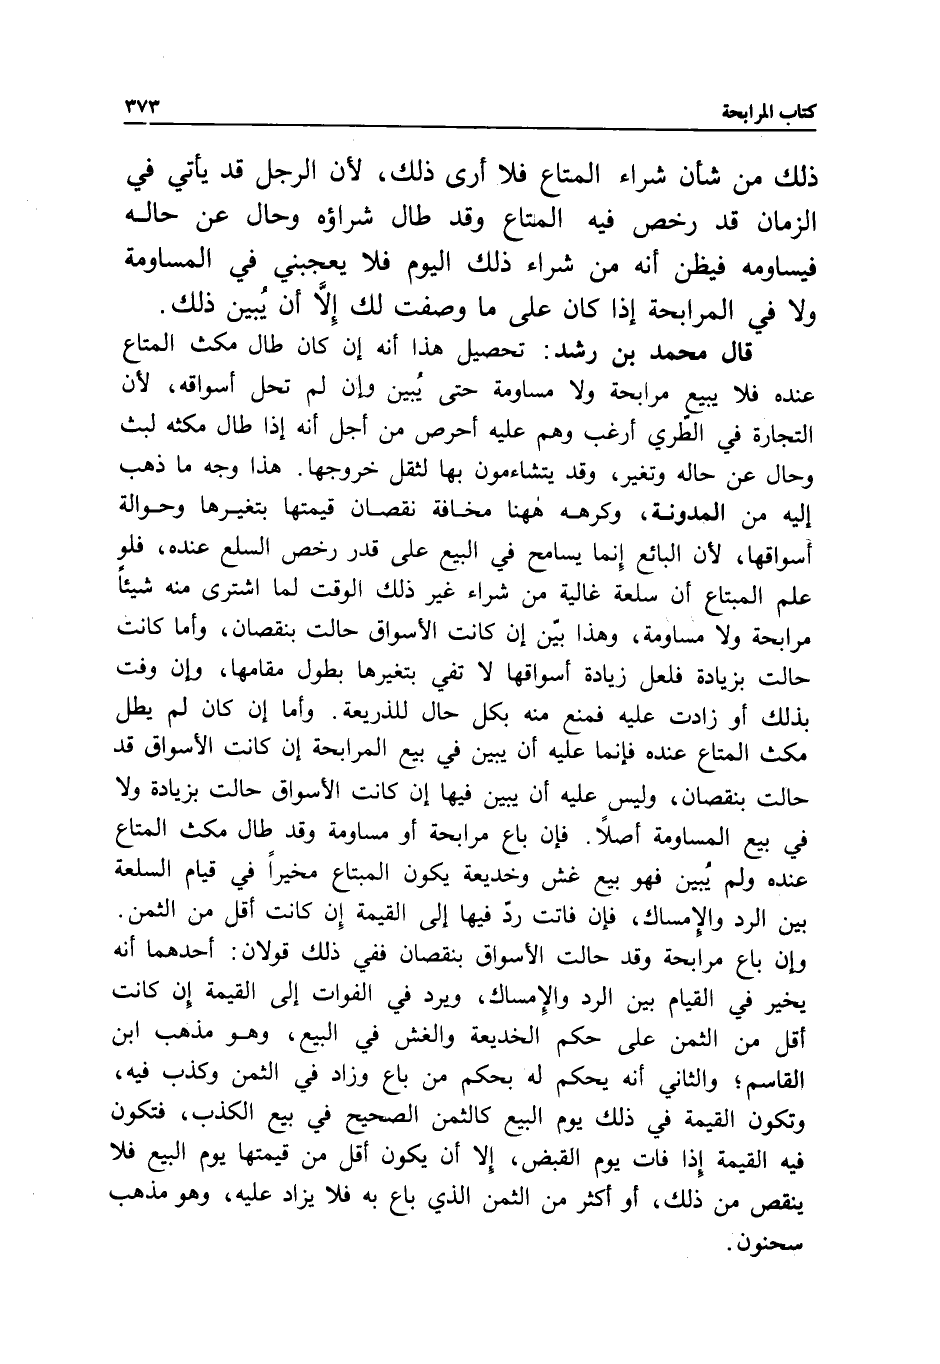 كتاب المرابحة ٣٧٣
ذلك من شأن شراء المتاع فلا أرى ذلك، لأن الرجل قد يأتي في
الزمان قد رخص فيه المتاع وقد طال شراؤه وحال عن حاله
فيساومه فيظن أنه من شراء ذلك اليوم فلا يعجبني في المساومة
ولا في المرابحة إذا كان على ما وصفت لك إلَّا أن يُبين ذلك.
قال محمد بن رشد: تحصيل هذا أنه إن كان طال مكث المتاع
عنده فلا يبيع مرابحة ولا مساومة حتى يُبين وإن لم تحل أسواقه، لأن
التجارة في الطّري أرغب وهم عليه أحرص من أجل أنه إذا طال مكثه لبث
وحال عن حاله وتغير، وقد يتشاءمون بها لثقل خروجها. هذا وجه ما ذهب
إليه من المدونة، وكرهه هٰهنا مخافة نقصان قيمتها بتغيرها وحوالة
أسواقها، لأن البائع إنما يسامح في البيع على قدر رخص السلع عنده، فلو
علم المبتاع أن سلعة غالية من شراء غير ذلك الوقت لما اشترى منه شيئاً
مرابحة ولا مساومة، وهذا بيّن إن كانت الأسواق حالت بنقصان، وأما كانت
حالت بزيادة فلعل زيادة أسواقها لا تفي بتغيرها بطول مقامها، وإن وفت
بذلك أو زادت عليه فمنع منه بكل حال للذريعة. وأما إن كان لم يطل
مكث المتاع عنده فإنما عليه أن يبين في بيع المرابحة إن كانت الأسواق قد
حالت بنقصان، وليس عليه أن يبين فيها إن كانت الأسواق حالت بزيادة ولا
في بيع المساومة أصلاً. فإن باع مرابحة أو مساومة وقد طال مكث المتاع
عنده ولم يُبين فهو بيع غش وخديعة يكون المبتاع مخيراً في قيام السلعة
بين الرد والإمساك، فإن فاتت ردّ فيها إلى القيمة إن كانت أقل من الثمن.
وإن باع مرابحة وقد حالت الأسواق بنقصان ففي ذلك قولان: أحدهما أنه
يخير في القيام بين الرد والإمساك، ويرد في الفوات إلى القيمة إن كانت
أقل من الثمن على حكم الخديعة والغش في البيع، وهو مذهب ابن
القاسم؛ والثاني أنه يحكم له بحكم من باع وزاد في الثمن وكذب فيه،
وتكون القيمة في ذلك يوم البيع كالثمن الصحيح في بيع الكذب، فتكون
فيه القيمة إذا فات يوم القبض، إلا أن يكون أقل من قيمتها يوم البيع فلا
ينقص من ذلك، أو أكثر من الثمن الذي باع به فلا يزاد عليه، وهو مذهب
سحنون.